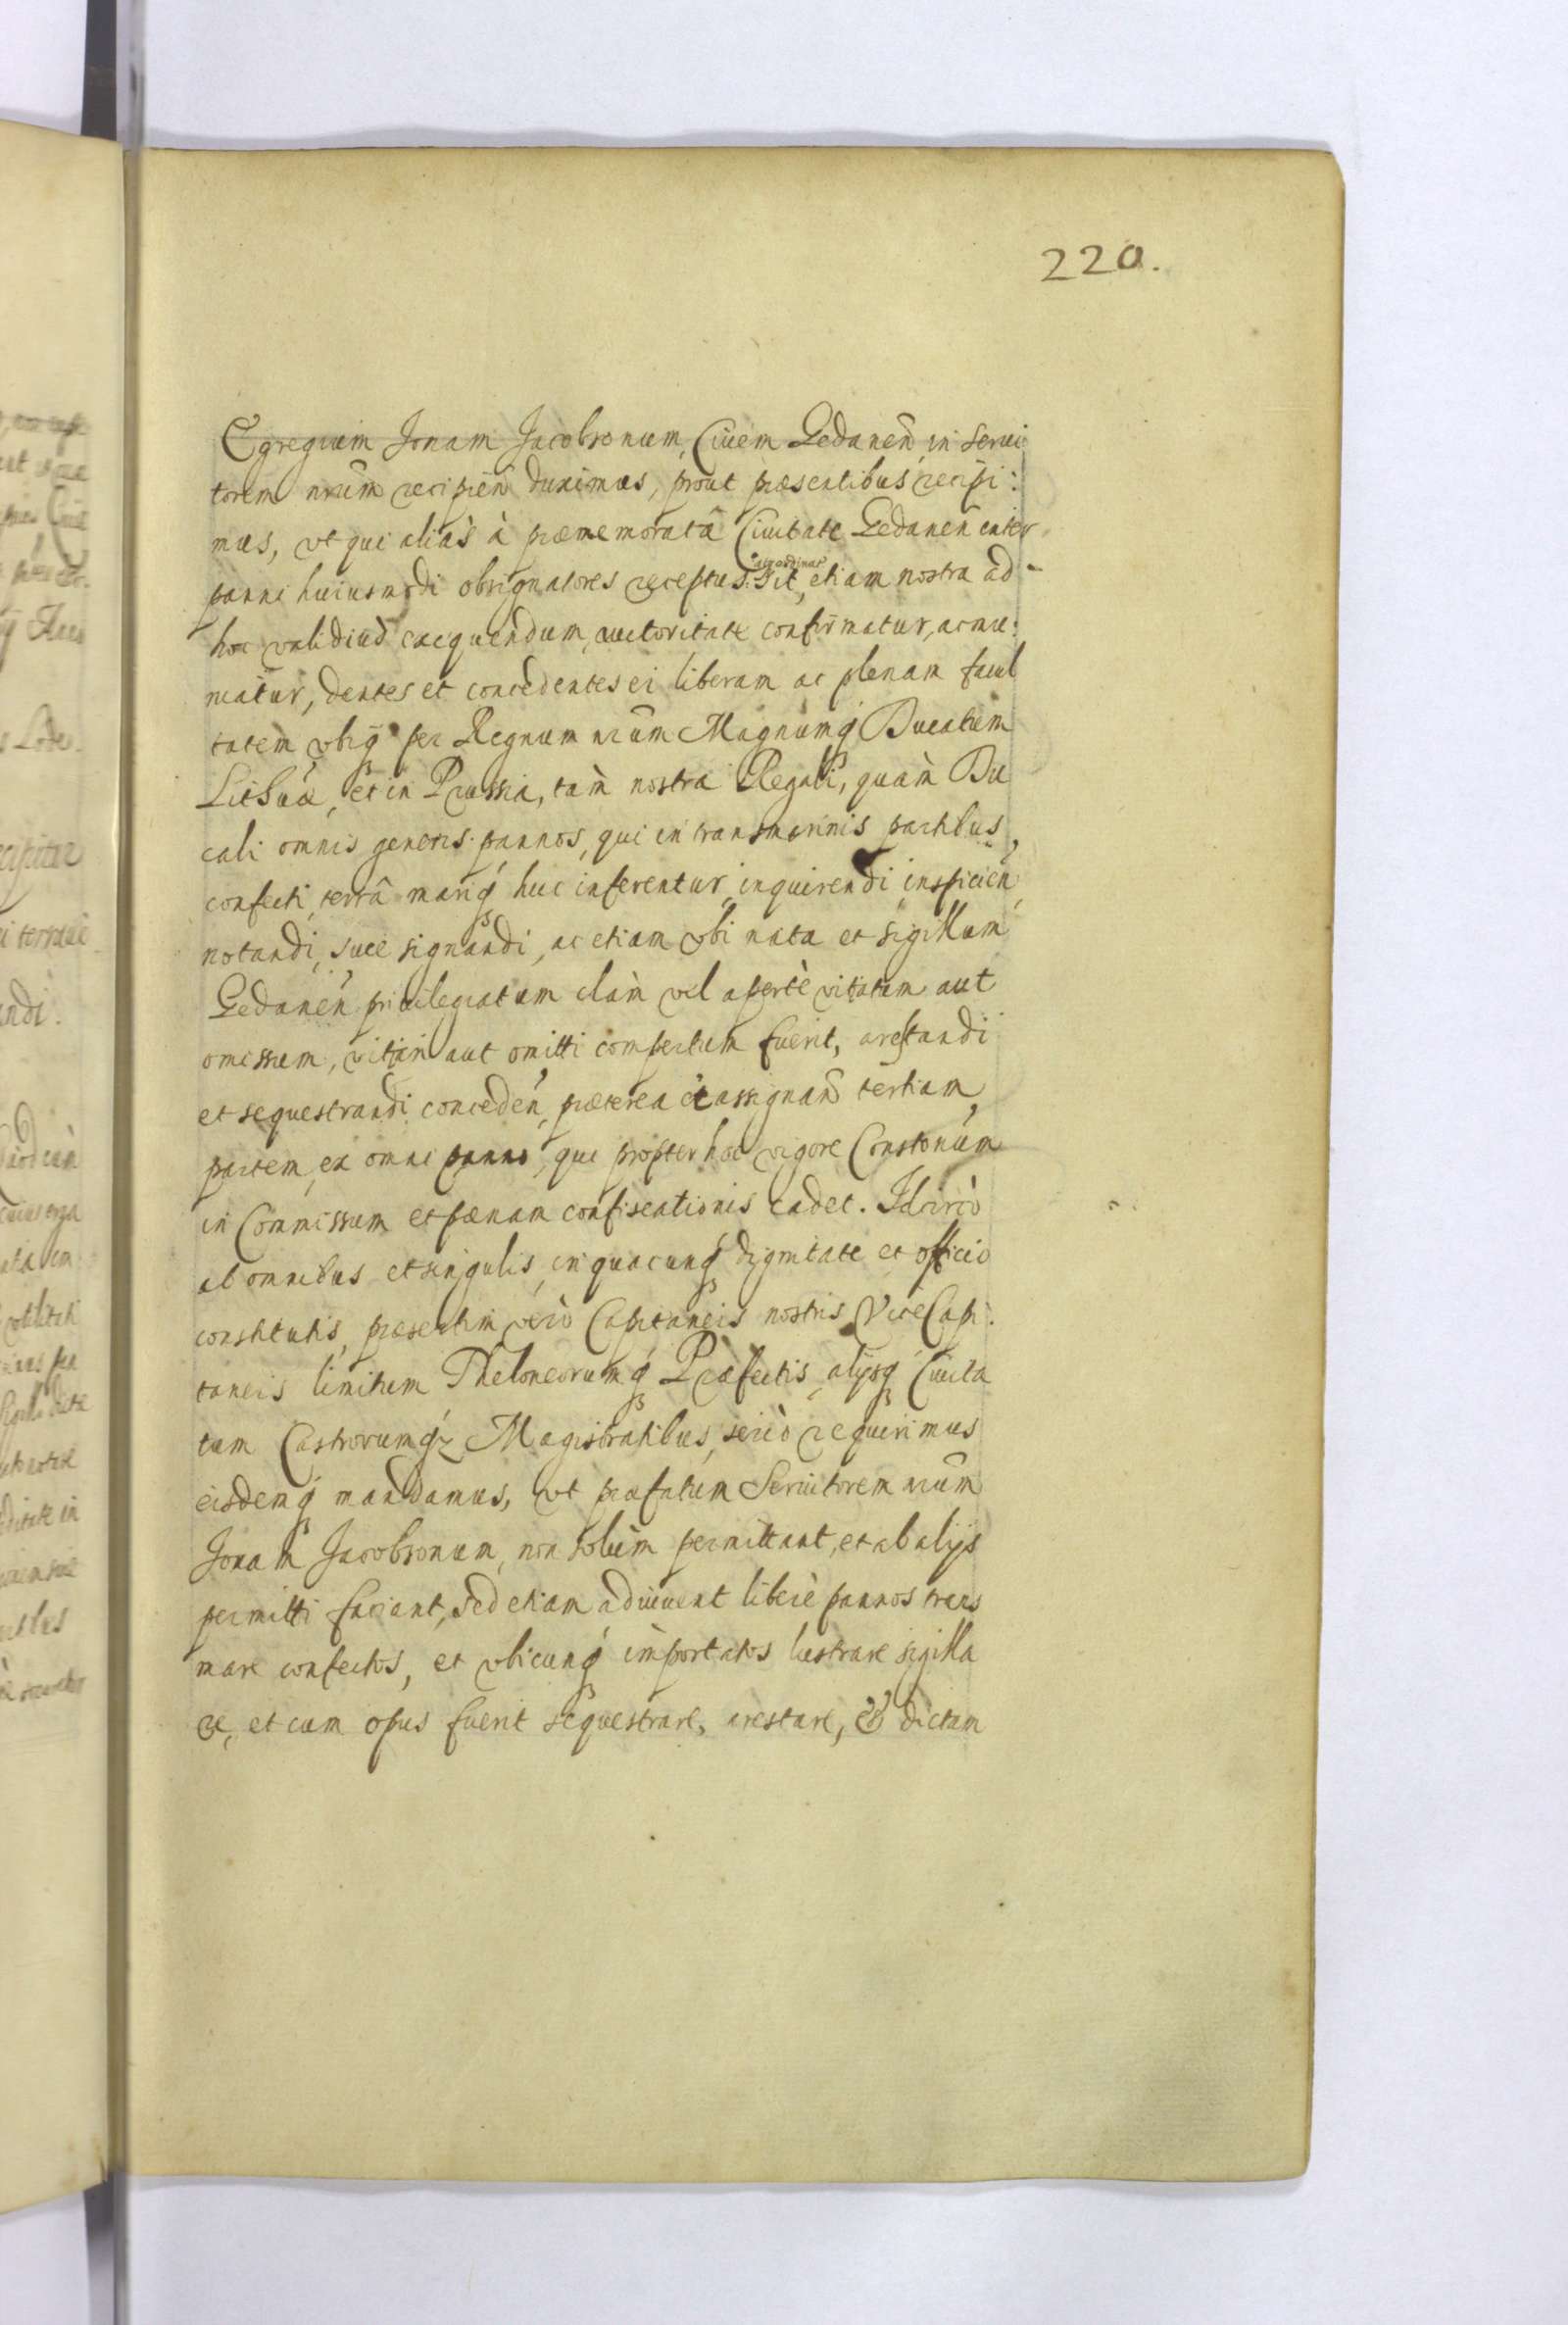 220.
Egregium Jonam Jacobsonum, Ciuem Gedanen̄ in serui
torem nrũm recipien̄ duximus, prout præsentibus recipi:
mus, vt qui aliàs à præmemoratâ Ciuitate Gedanen̄ inter
ac ordinatus
panni huiusmodi obsignatores receptus sit, etiam nostra ad
hoc validius exequendum, auctoritate confirmatur, ac mu:
niatur, dentes et concedentes ei liberam ac plenam facul
tatem vbiq́ per Regnum nrũm Magnumq́ Ducatum
Lithuã, et in Prussia, tàm nostra Regali, quàm Du
cali omnis generis pannos, qui in transmarinis partibus,
confecti, terrâ mariq́ huc inferentur, inquirendi, inspicien̄,
notandi, siue signandi, ac etiam vbi nota et sigillum
Gedanen̄ priuilegiatum clàm vel apertè vitatum aut
omissum, vitari aut omitti compertum fuerit, arestandi
et sequestrandi conceden̄, præterea et assignan̄ tertiam
partem, ex omni panno, qui propter hoc vigore Constonum
in Commissum et pœnam confiscationis cadet. Idcircò
ab omnibus et singulis, in quacunq́ dignitate et officio
constitutis, præsertim verò Capitaneis nostris ViceCapi:
taneis limitum Theloneorumq́ Præfectis, alijsq́ Ciuita
tum Castrorumqz Magistratibus, seriò requirimus
eisdemq́ mandamus, vt præfatum Seruitorem nrũm
Jonam Jacobsonum, non solùm permittant, et ab alijs
permitti faciant, sed etiam adiuuent liberè pannos trans
mare confectos, et vbicunq́ importatos lustrare sigilla
re, et cum opus fuerit sequestrare, arestare, & dictam